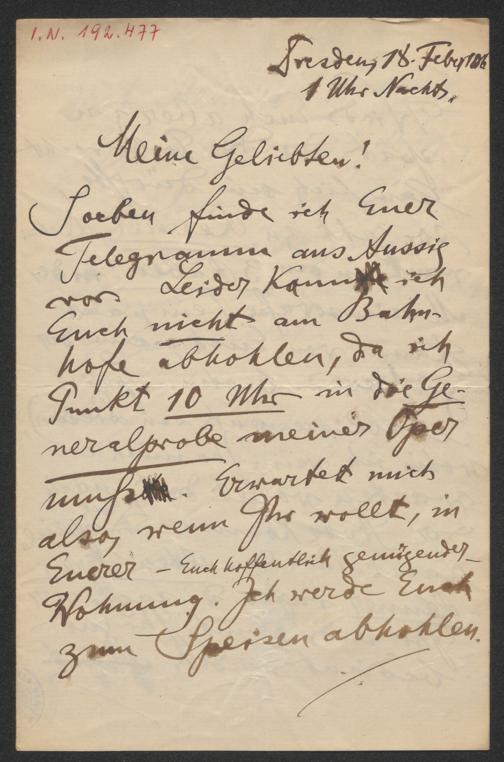 I.N. 192.477
Dresden, 18. Feber 
1 Uhr Nachts.
Meine Geliebten!
Soeben finde ich Euer
Telegramm aus Aussig
vor. Leider kann ich
Euch nicht am Bahn-
hofe abhohlen, da ich
Punkt 10 Uhr in die Ge-
neralprobe meiner Oper
muß. Erwartet mich
also, wenn Ihr wollt, in
Euerer – Euch hoffentlich genügender –
Wohnung. Ich werde Euch
zum Speisen abhohlen.